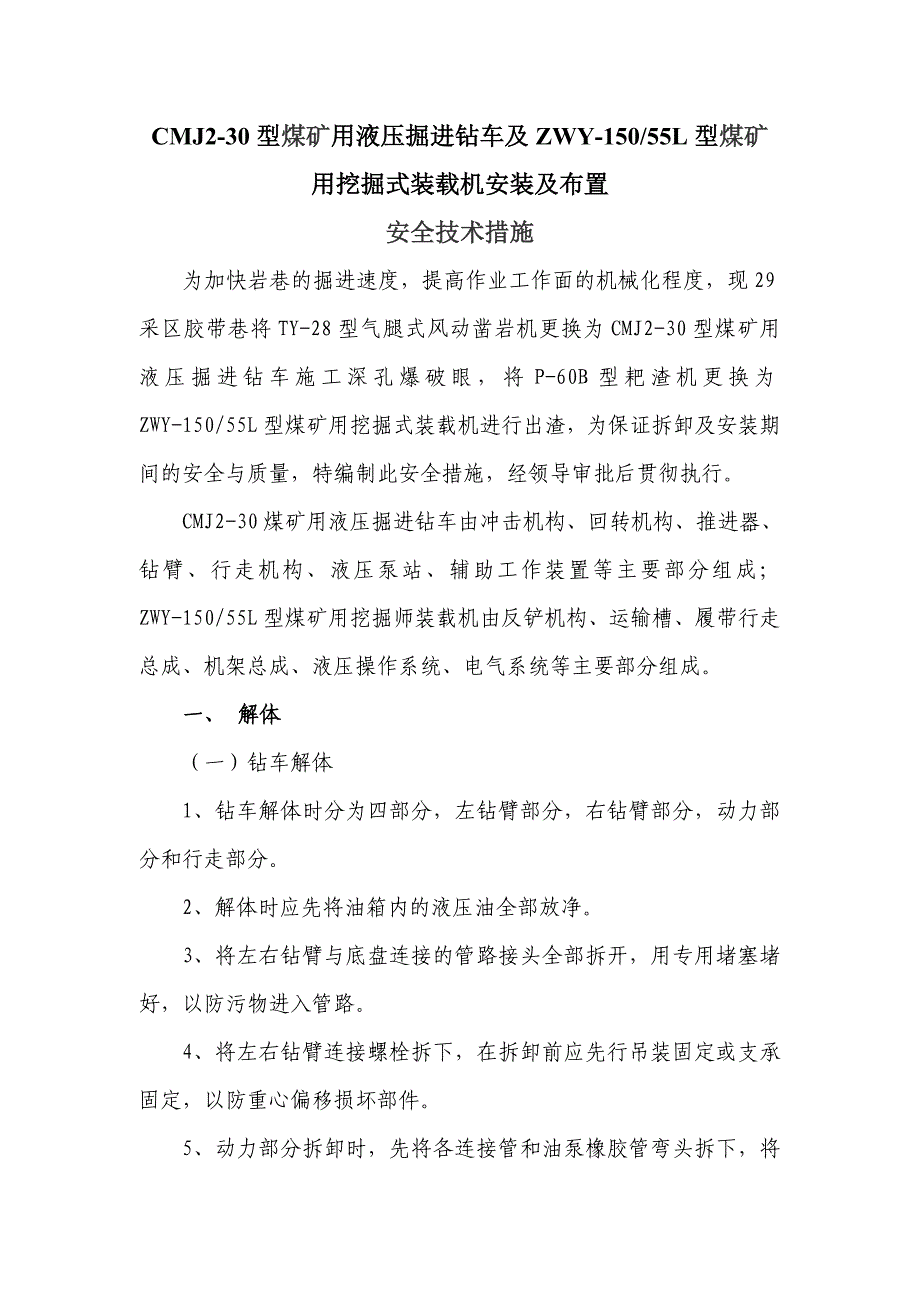 CMJ2-30 型煤矿用液压掘进钻车及 ZWY-150/55L 型煤矿
用挖掘式装载机安装及布置
安全技术措施
为加快岩巷的掘进速度，提高作业工作面的机械化程度，现 29
采区胶带巷将 TY-28 型气腿式风动凿岩机更换为 CMJ2-30 型煤矿用
液压掘进钻车施工深孔爆破眼，将 P-60B 型耙渣机更换为
ZWY-150/55L 型煤矿用挖掘式装载机进行出渣，为保证拆卸及安装期
间的安全与质量，特编制此安全措施，经领导审批后贯彻执行。
CMJ2-30 煤矿用液压掘进钻车由冲击机构、回转机构、推进器、
钻臂、行走机构、液压泵站、辅助工作装置等主要部分组成；
ZWY-150/55L 型煤矿用挖掘师装载机由反铲机构、运输槽、履带行走
总成、机架总成、液压操作系统、电气系统等主要部分组成。
一、 解体
（一）钻车解体
1、钻车解体时分为四部分，左钻臂部分，右钻臂部分，动力部
分和行走部分。
2、解体时应先将油箱内的液压油全部放净。
3、将左右钻臂与底盘连接的管路接头全部拆开，用专用堵塞堵
好，以防污物进入管路。
4、将左右钻臂连接螺栓拆下，在拆卸前应先行吊装固定或支承
固定，以防重心偏移损坏部件。
5、动力部分拆卸时，先将各连接管和油泵橡胶管弯头拆下，将